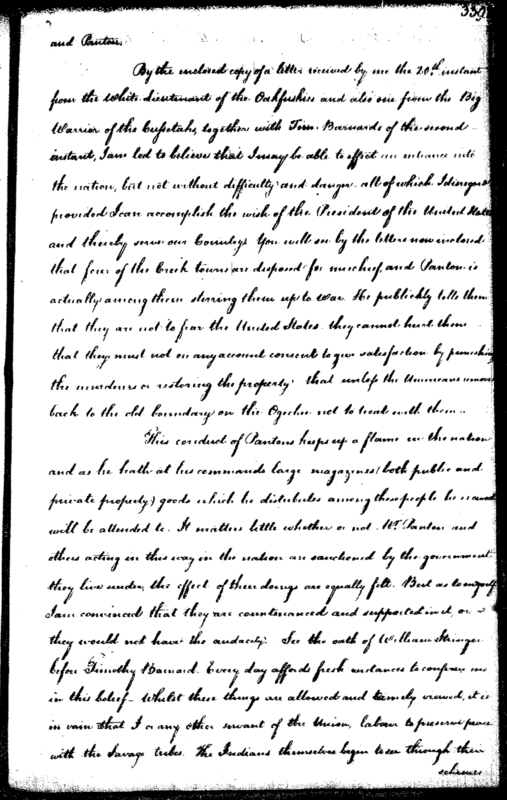 339
and Panton.
By the enclosed copy of a letter received by me the 20th instant
from the White Lieutenant of the Oakfuskies and also one from the Big
Warrior of the Cussetahs, together with Tim. Barnards of the second
instant, I am led to believe that I may be able to effect an entrance into
the nation, but not without difficulty and danger all of which I disregard
provided I can accomplish the wish of the President of the United States
and thereby serve our Country. You will see by the letters now inclosed
that four of the Creek towns are disposed for mischief, and Panton is
actually among them stirring them up to war. He publickly tells them
that they are not to fear the United States they cannot hurt them
that they must not on any account consent to give satisfaction by punishing
the murderers or restoring the property: that unless the Americans move
back to the old boundary on the Ogechee not to treat with them.
This conduct of Pantons keeps up a flame in the nation
and as he hath at his commands large magazines (both public and
private property) goods which he distributes among these people he is and
will be attended to. It matters little whether or not Mr. Panton and
others acting in this way in the nation are sanctioned by the government
they live under, the effect of their doings are equally felt. But as to myself
I am convinced that they are countenanced and supported in it, or
they would not have the audacity. See the oath of William Stringer
before Timothy Barnard. Every day affords fresh instances to confirm me
in this belief - Whilst these things are allowed and tamely viewed, it is
in vain that I or any other servant of the Union, labour to preserve peace
with the Savage tribes. The Indians themselves begin to see through their
schemes